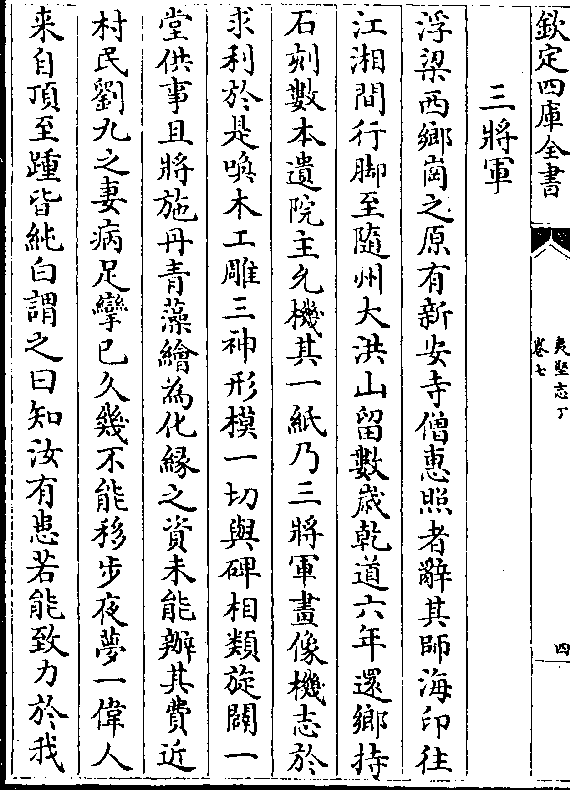 欽定四庫全書
夷堅志丁
卷七
四
三將軍
浮梁西鄉崗之原有新安寺僧惠照者辭其師海印往
江湘間行脚至隨州大洪山留數歲乾道六年還鄉持
石刻數本遺院主允機其一紙乃三將軍畫像機志於
求利於是喚木工雕三神形模一切與碑相類旋闢一
堂供事且將施丹青藻繪為化緣之資未能辦其費近
村民劉九之妻病足攣已久幾不能移步夜夢一偉人
来自頂至踵皆純白謂之曰知汝有患若能致力於我